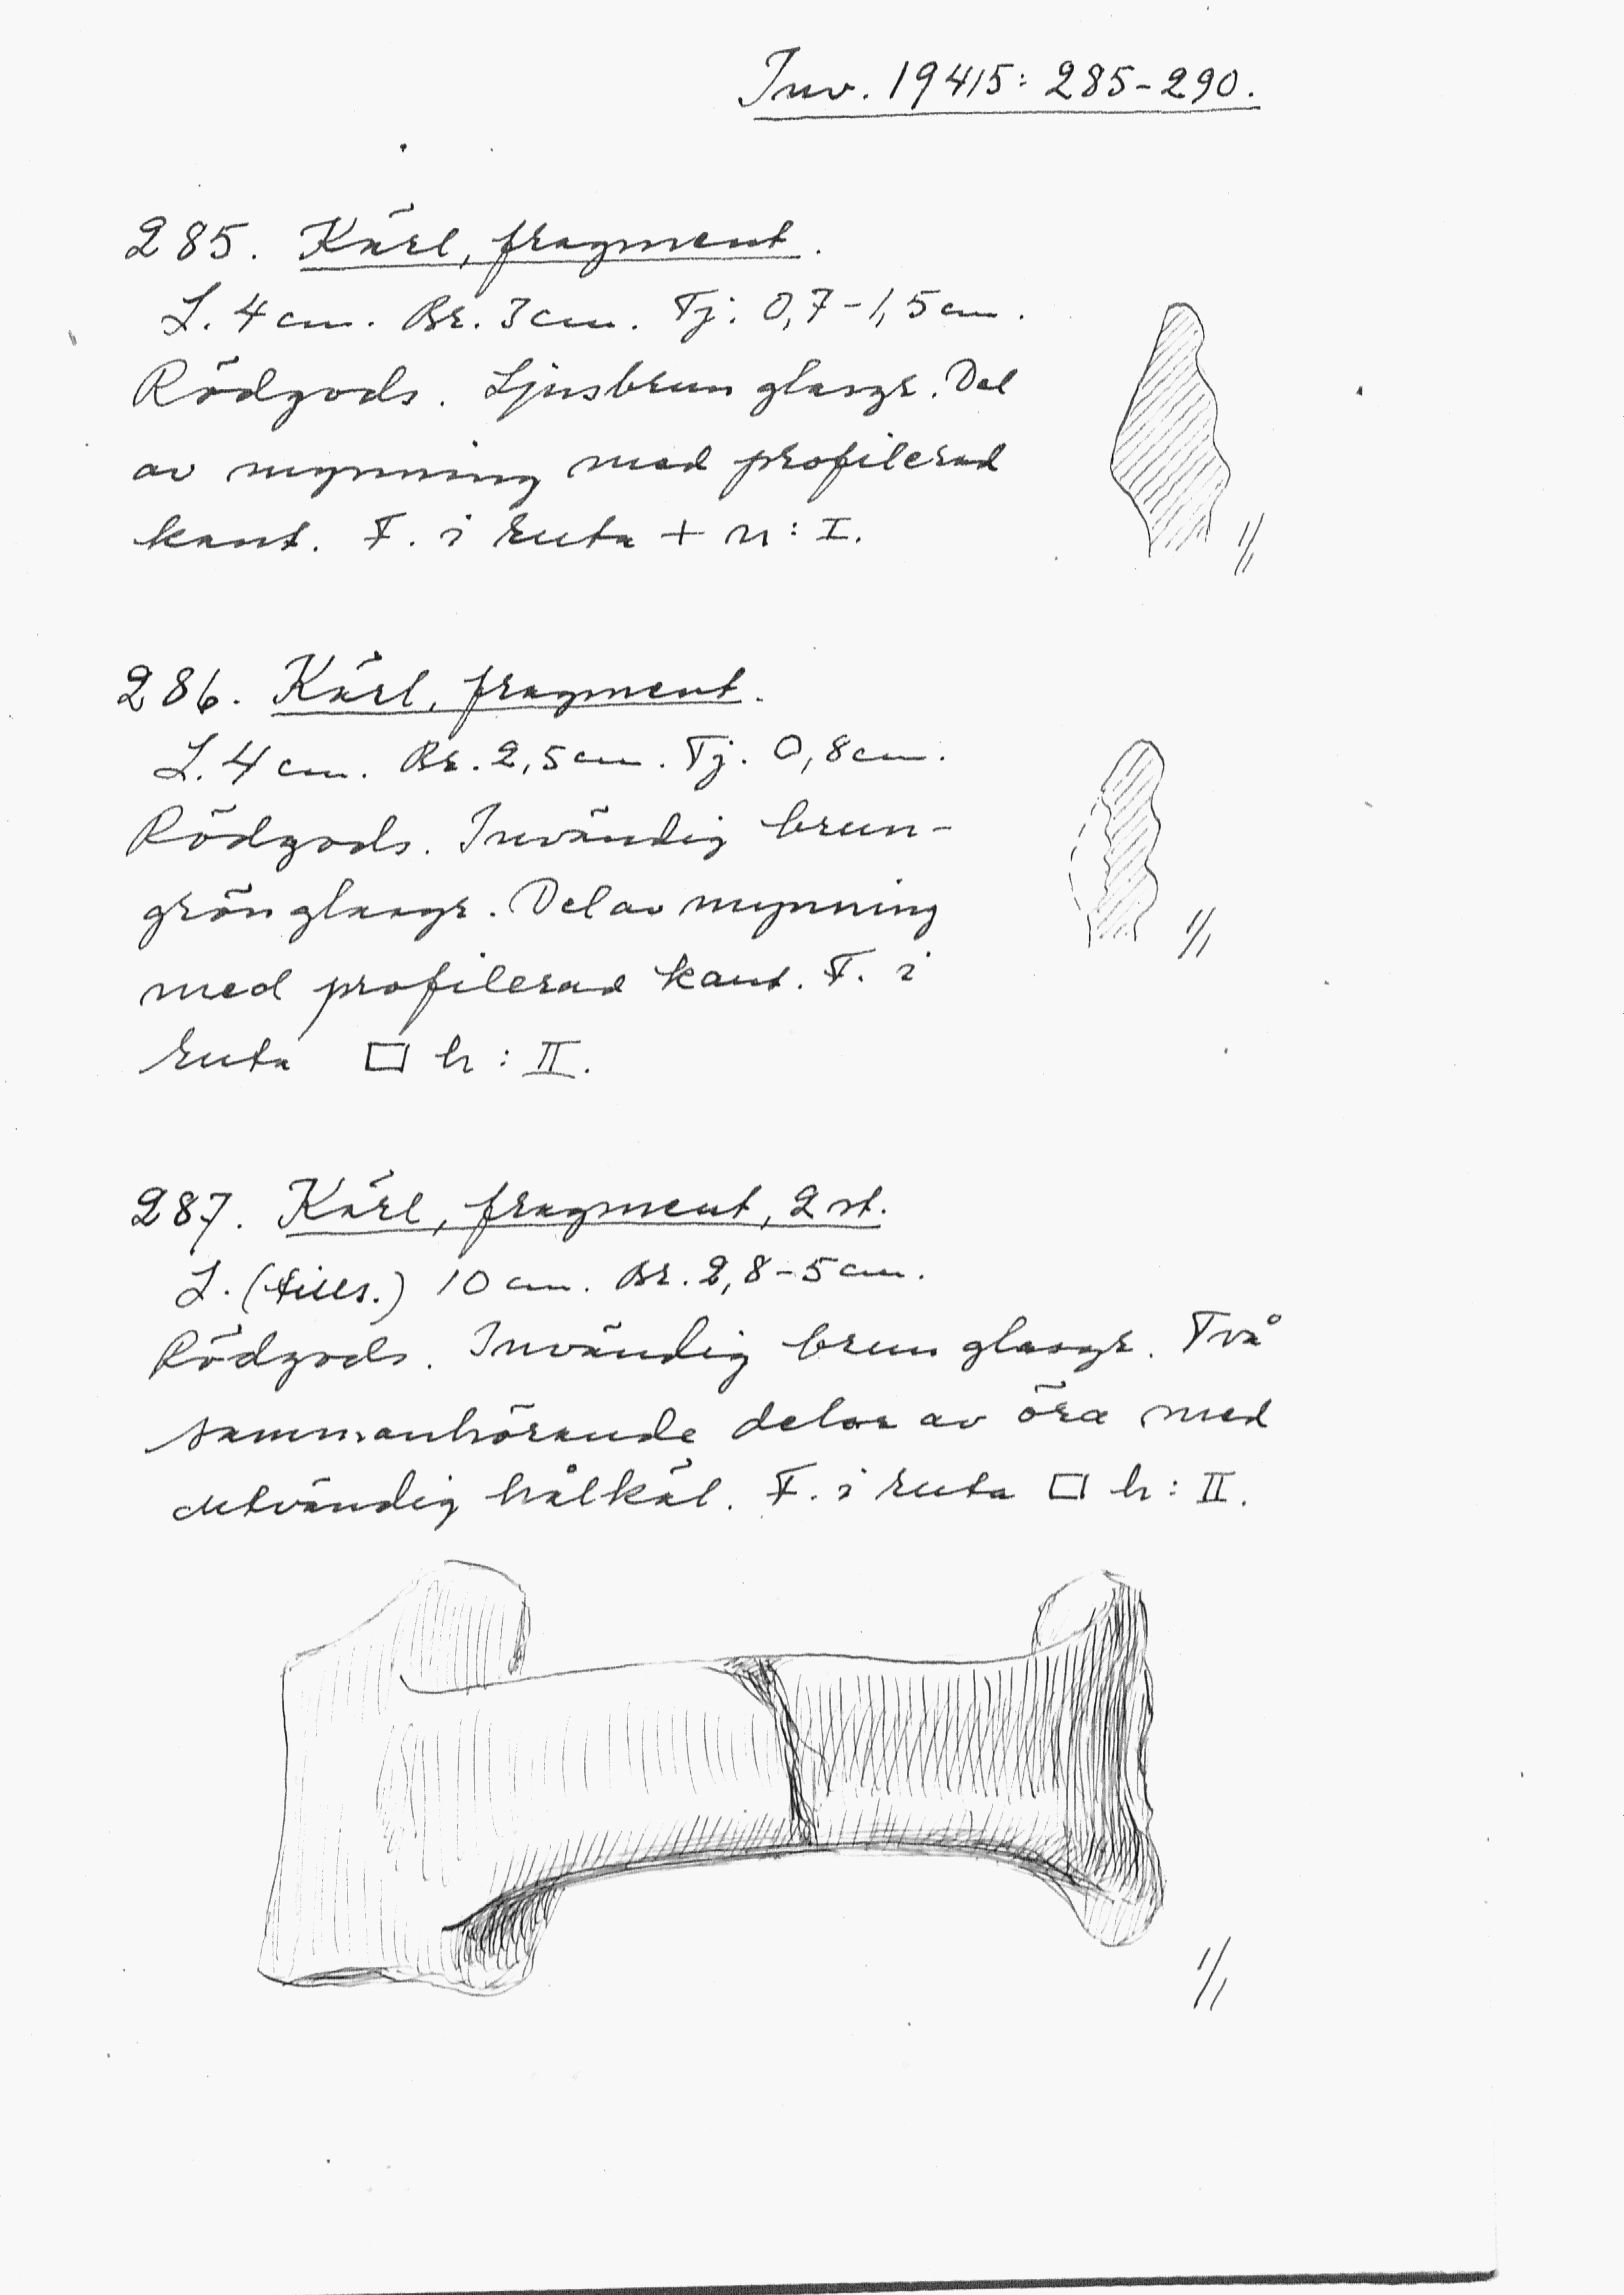 Inv. 19415: 285-290.
285. Kärl, fragment.
L. 4 cm. Br. 3 cm. Tj. 0,7-1,5 cm.
Rödgods. Ljusbrun glasyr. Del
av mynning med profilerad
kant. F. i ruta + n: I.
1/1
286. Kärl, fragment.
L. 4 cm. Br. 2,5 cm. Tj. 0,8 cm.
Rödgods. Invändig brun-
grön glasyr. Del av mynning
med profilerad kant. F. i
ruta □ h: II.
1/1
287. Kärl, fragment, 2 st.
L. (tills.) 10 cm. Br. 2,8-5 cm.
Rödgods. Invändig brun glasyr. Två
sammanhörande delar av öra med
utvändig hålkäl. F. i ruta □ h: II.
1/1